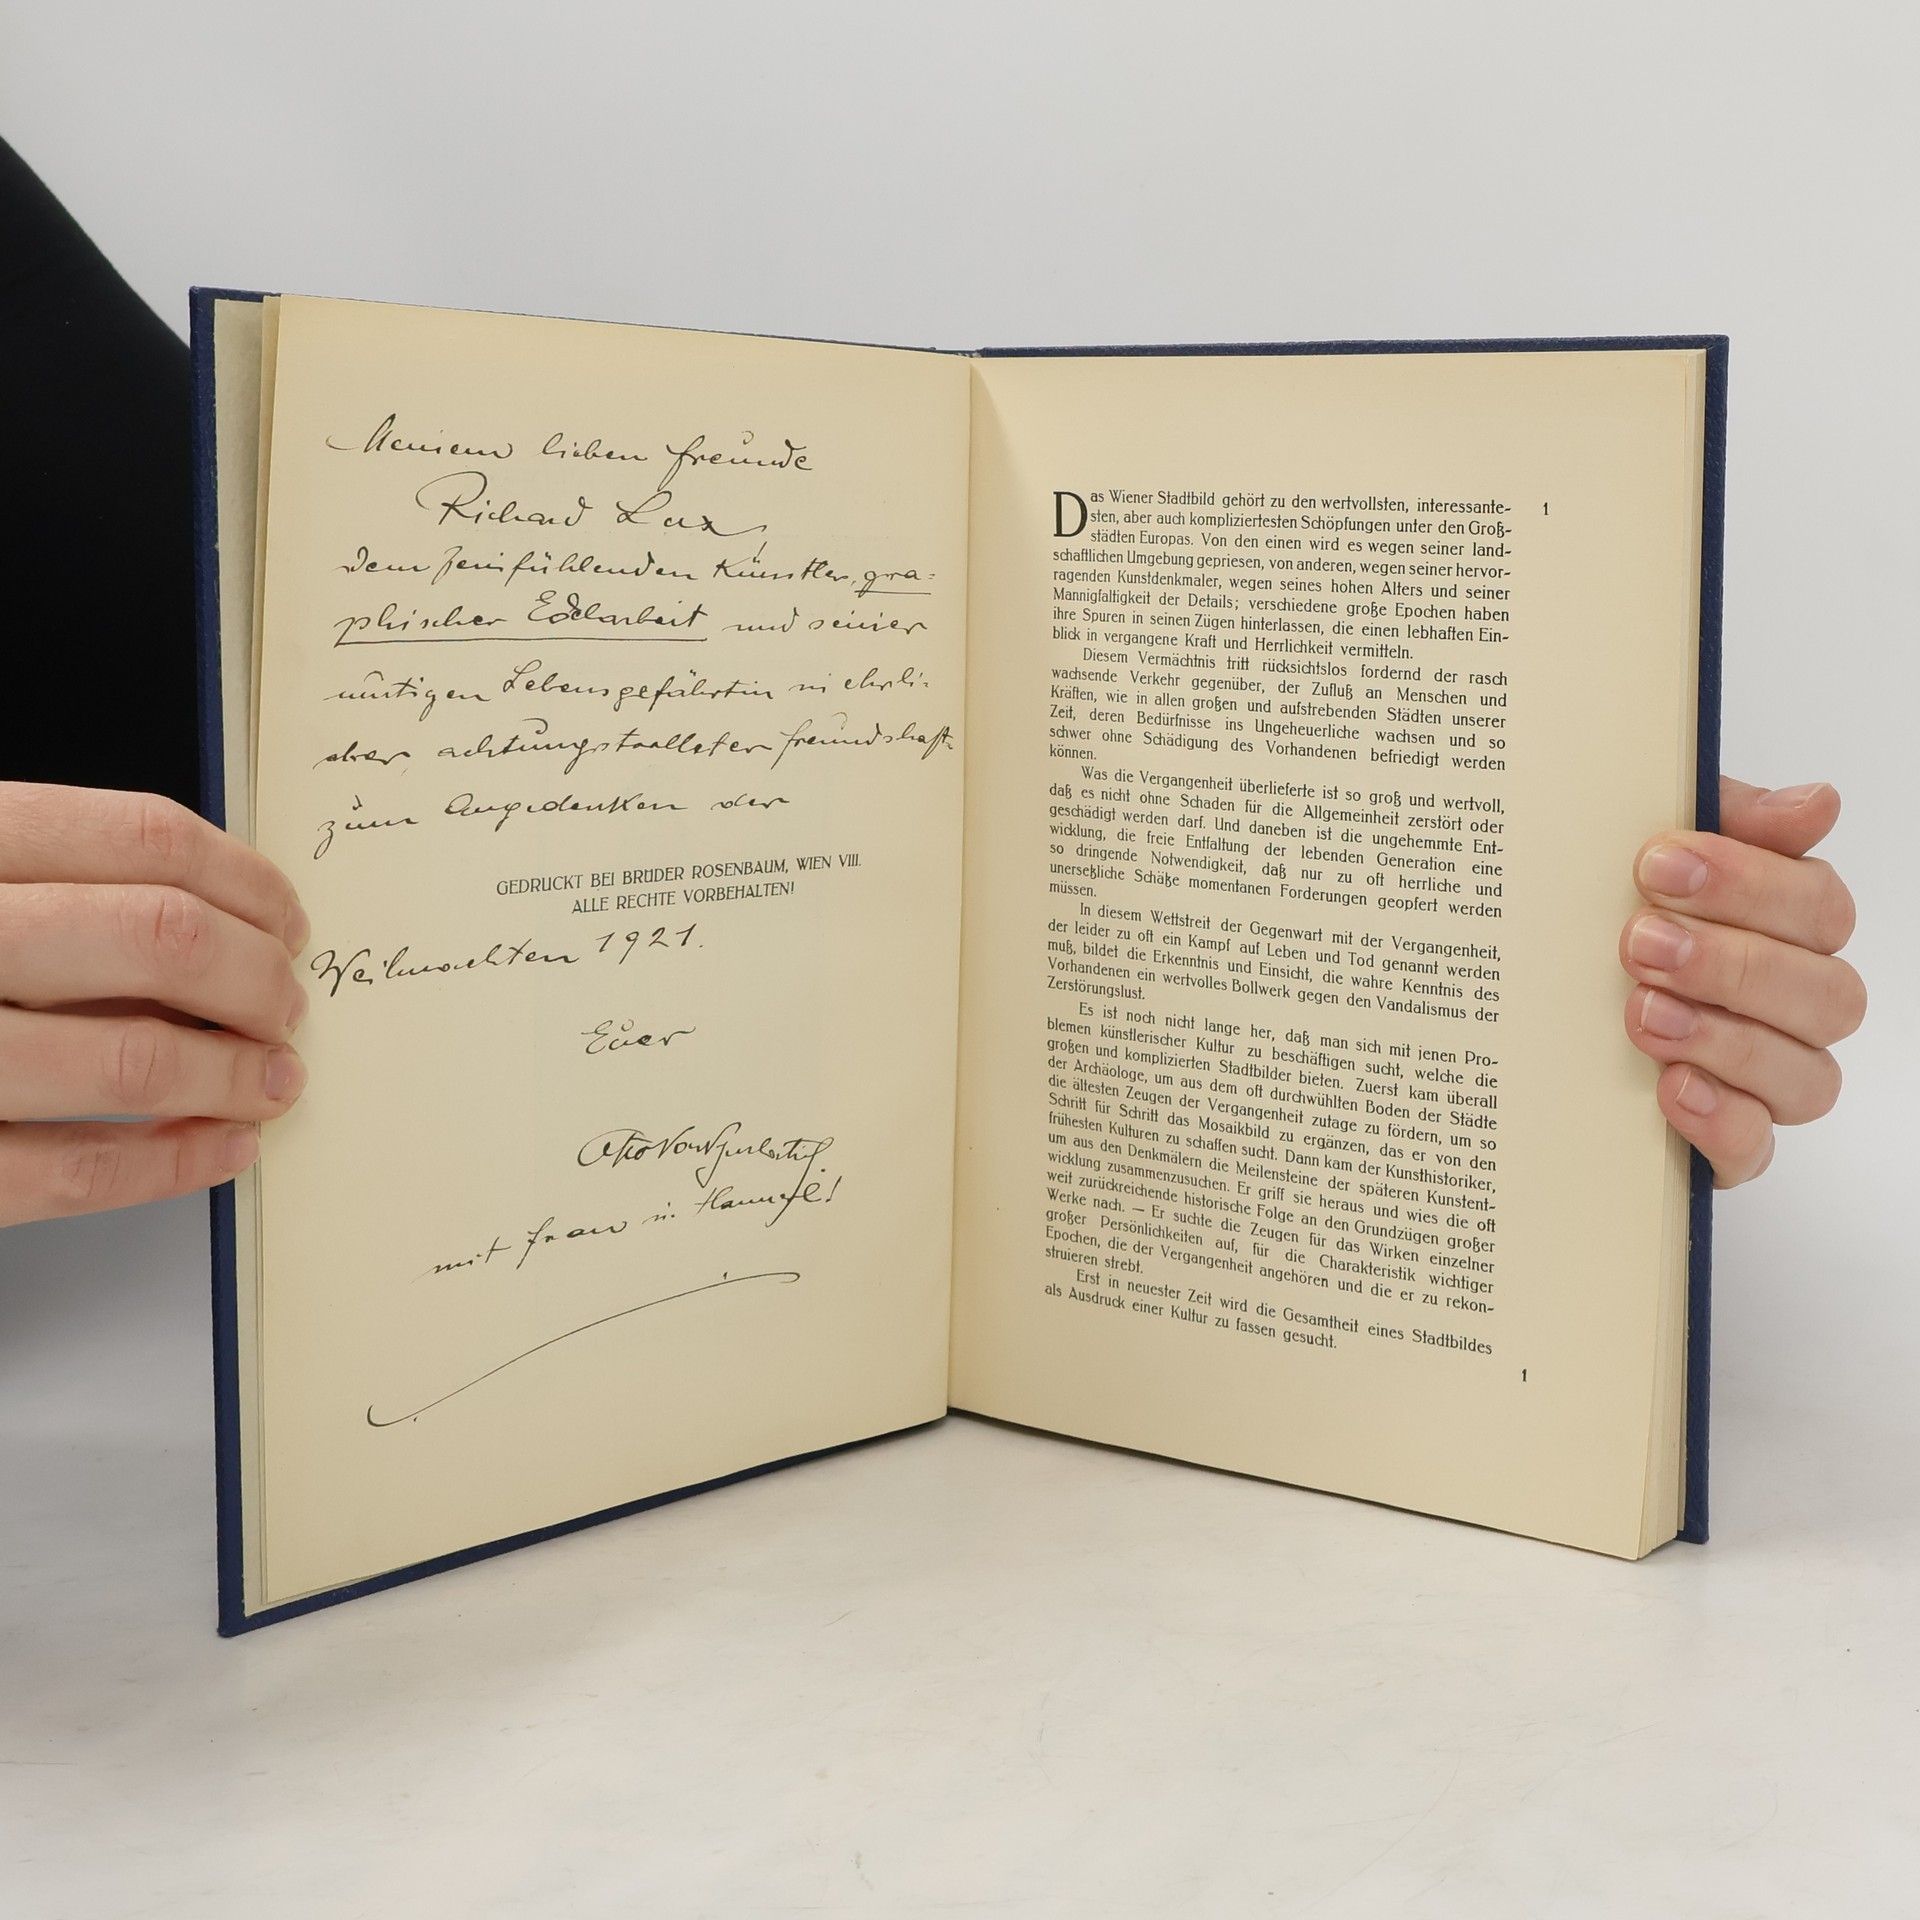 Meinem lieben Freunde
Richard Lux,
dem feinfühlenden Künstler, gra=
phischer Edelarbeit und seiner
mutigen Lebensgefährtin in ehrli=
cher, achtungsvollster Freundschaft
zum Angedenken der
GEDRUCKT BEI BRÜDER ROSENBAUM, WIEN VIII.
ALLE RECHTE VORBEHALTEN!
Weihnachten 1921.
Euer
Otto
mit Frau u. Hannerl!
Das Wiener Stadtbild gehört zu den wertvollsten, interessante- 1
sten, aber auch kompliziertesten Schöpfungen unter den Groß-
städten Europas. Von den einen wird es wegen seiner land-
schaftlichen Umgebung gepriesen, von anderen, wegen seiner hervor-
ragenden Kunstdenkmaler, wegen seines hohen Alters und seiner
Mannigfaltigkeit der Details; verschiedene große Epochen haben
ihre Spuren in seinen Zügen hinterlassen, die einen lebhaften Ein-
blick in vergangene Kraft und Herrlichkeit vermitteln.
Diesem Vermächtnis tritt rücksichtslos fordernd der rasch
wachsende Verkehr gegenüber, der Zufluß an Menschen und
Kräften, wie in allen großen und aufstrebenden Städten unserer
Zeit, deren Bedürfnisse ins Ungeheuerliche wachsen und so
schwer ohne Schädigung des Vorhandenen befriedigt werden
können.
Was die Vergangenheit überlieferte ist so groß und wertvoll,
daß es nicht ohne Schaden für die Allgemeinheit zerstört oder
geschädigt werden darf. Und daneben ist die ungehemmte Ent-
wicklung, die freie Entfaltung der lebenden Generation eine
so dringende Notwendigkeit, daß nur zu oft herrliche und
unersetzliche Schätze momentanen Forderungen geopfert werden
müssen.
In diesem Wettstreit der Gegenwart mit der Vergangenheit,
der leider zu oft ein Kampf auf Leben und Tod genannt werden
muß, bildet die Erkenntnis und Einsicht, die wahre Kenntnis des
Vorhandenen ein wertvolles Bollwerk gegen den Vandalismus der
Zerstörungslust.
Es ist noch nicht lange her, daß man sich mit jenen Pro-
blemen künstlerischer Kultur zu beschäftigen sucht, welche die
großen und komplizierten Stadtbilder bieten. Zuerst kam überall
der Archäologe, um aus dem oft durchwühlten Boden der Städte
die ältesten Zeugen der Vergangenheit zutage zu fördern, um so
Schritt für Schritt das Mosaikbild zu ergänzen, das er von den
frühesten Kulturen zu schaffen sucht. Dann kam der Kunsthistoriker,
um aus den Denkmälern die Meilensteine der späteren Kunstent-
wicklung zusammenzusuchen. Er griff sie heraus und wies die oft
weit zurückreichende historische Folge an den Grundzügen großer
Werke nach. — Er suchte die Zeugen für das Wirken einzelner
großer Persönlichkeiten auf, für die Charakteristik wichtiger
Epochen, die der Vergangenheit angehören und die er zu rekon-
struieren strebt.
Erst in neuester Zeit wird die Gesamtheit eines Stadtbildes
als Ausdruck einer Kultur zu fassen gesucht.
1